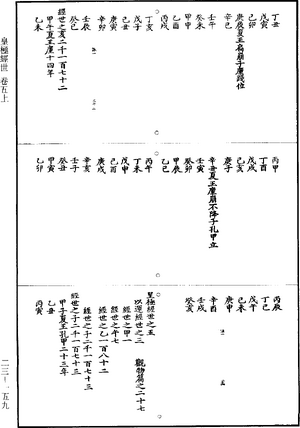 丁丑
戊寅
己卯
庚辰夏王扃崩子廑踐位
辛巳
壬午
癸未
甲申
乙酉
丙戌
丁亥
戊子
己丑
庚寅
辛卯
壬辰
癸巳
經世之亥二千一百七十二
甲午夏王廑十四年
乙未
丙申
丁酉
戊戌
己亥
庚子
辛丑夏王廑崩不降子孔甲立
壬寅
癸卯
甲辰
乙巳
丙午
丁未
戊申
己酉
庚戌
辛亥
壬子
癸丑
甲寅
乙卯
丙辰
丁巳
戊午
己未
庚申
辛酉
壬戌
癸亥
皇極經世之五
以運經世之三 觀物篇之二十七
經世之甲一
經世之午七
經世之乙一百八十二
經世之子二千一百七十三
經世之子二千一百七十三
甲子夏王孔甲二十三年
乙丑
丙寅
皇極經世 卷五上
二三一、五九